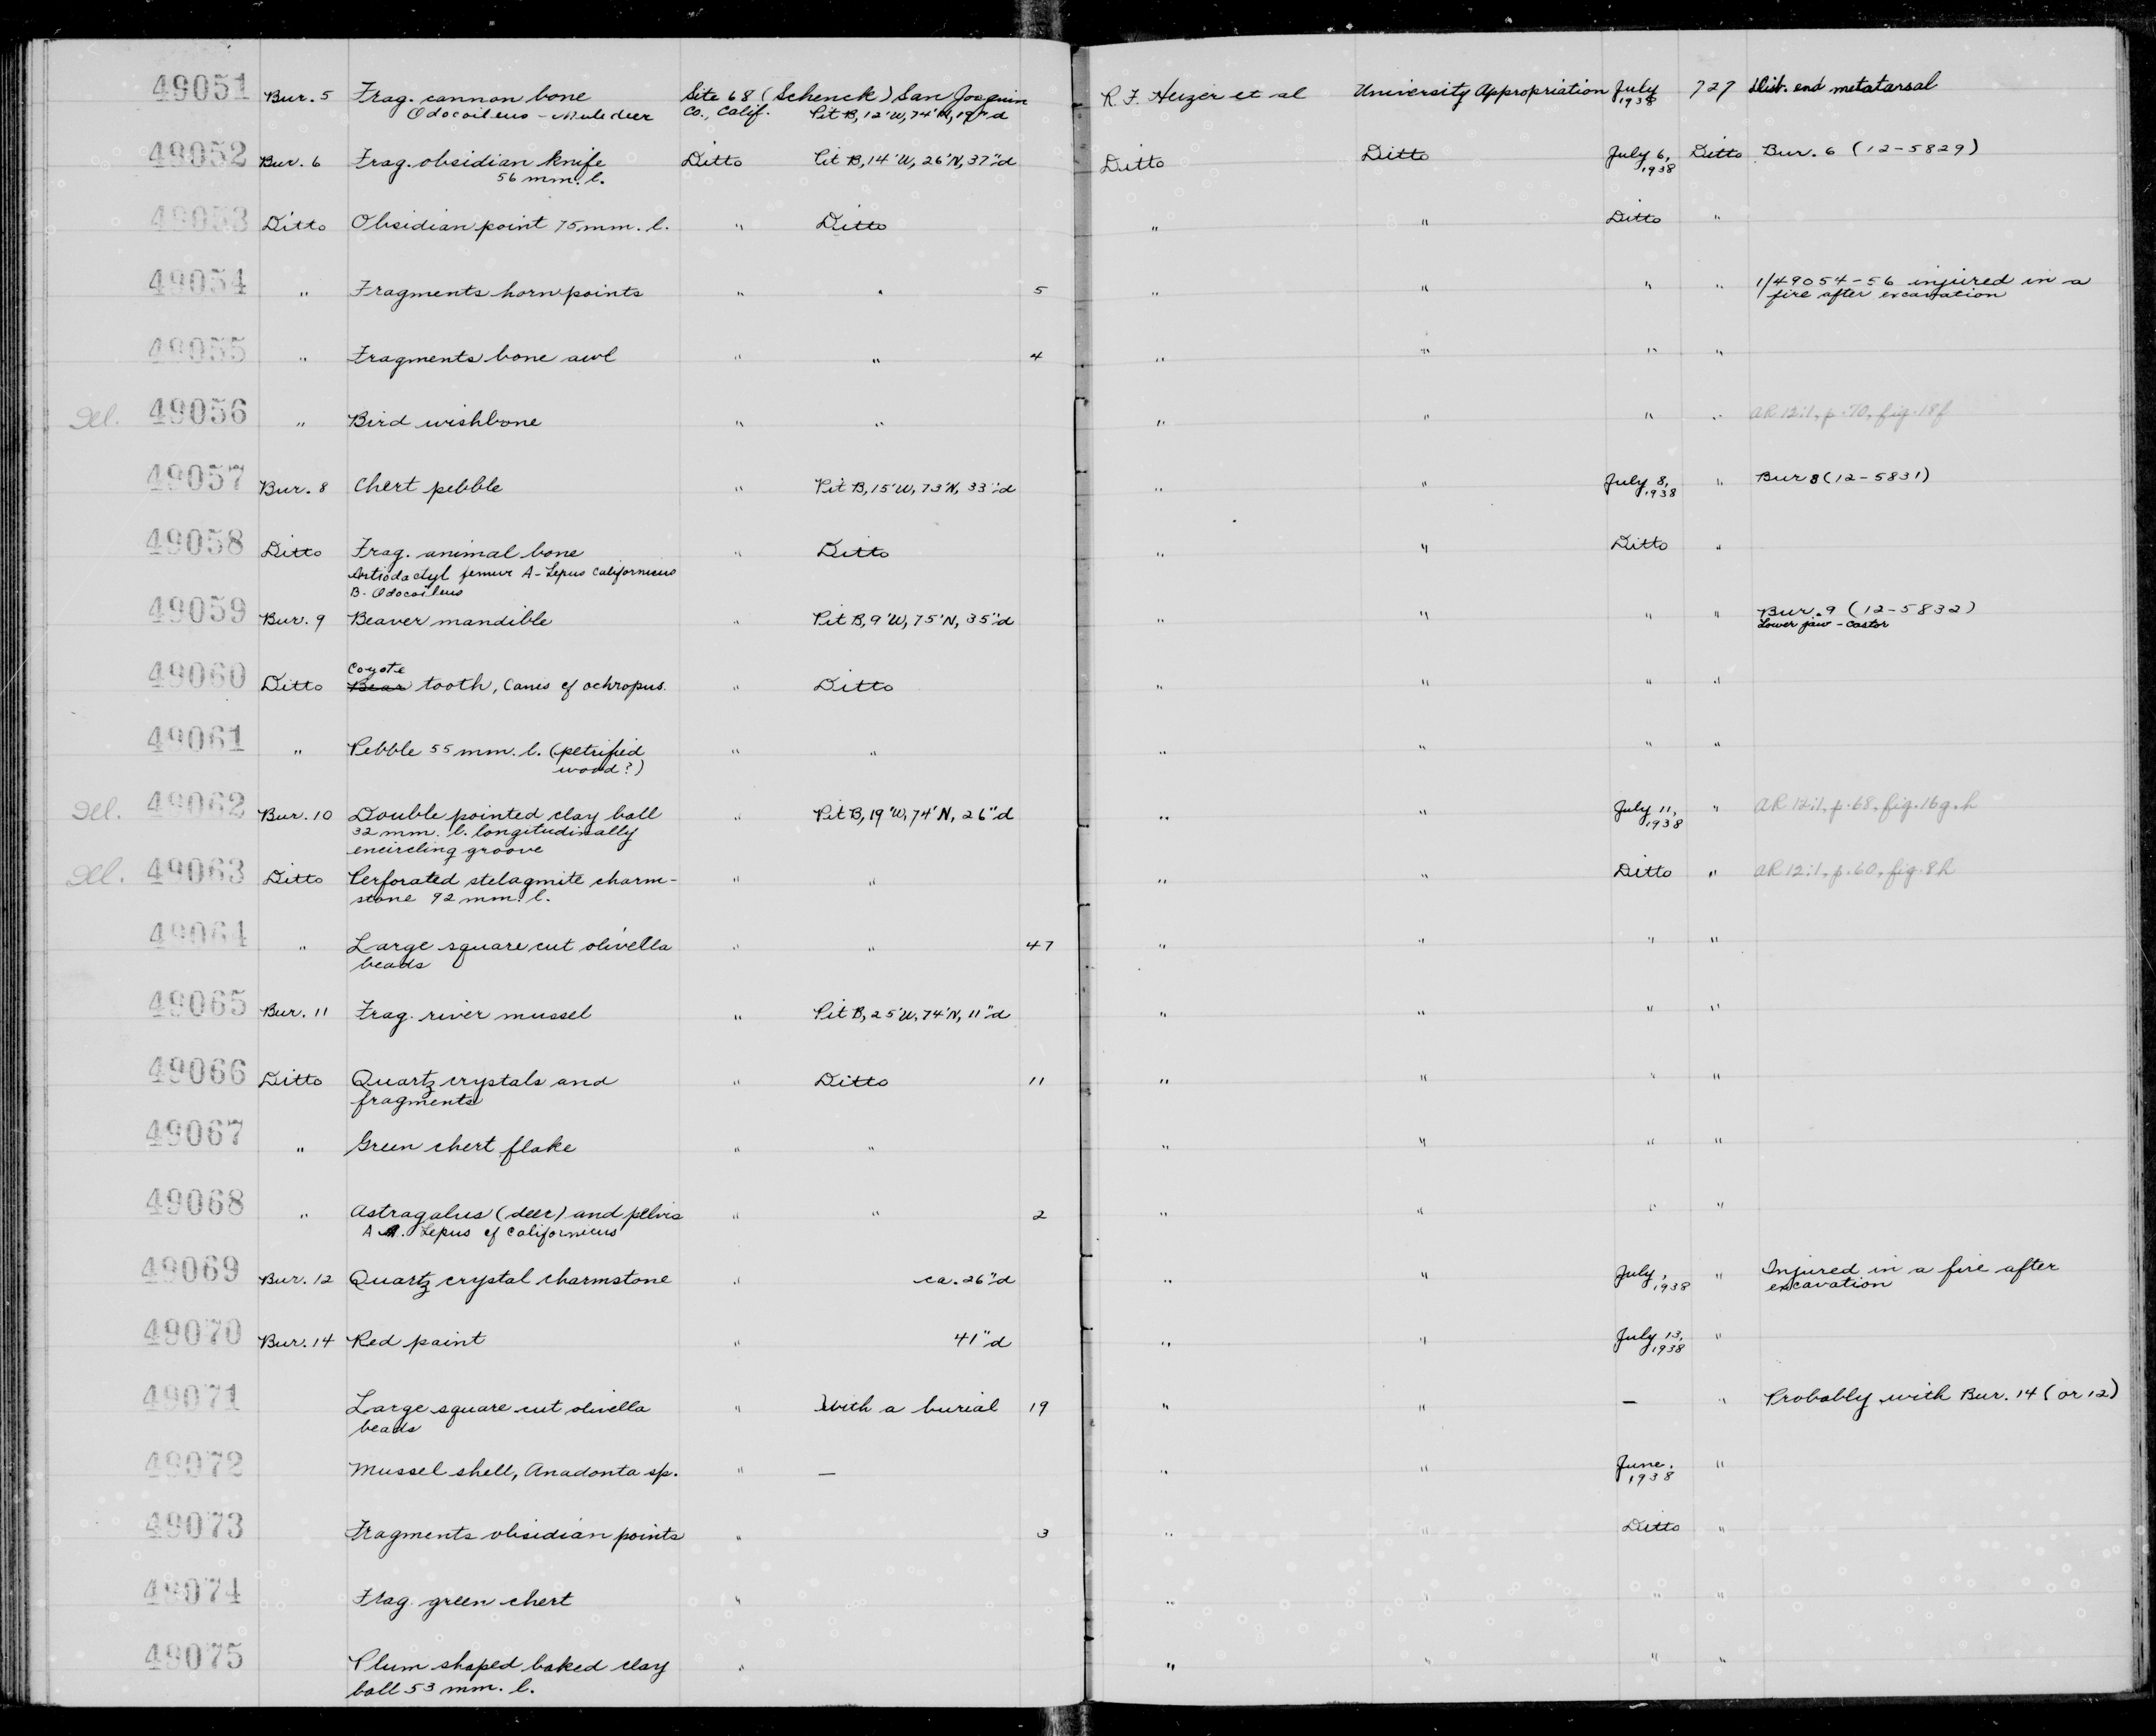 49051 Bur. 5 Frag. cannon bone Site 68 (Schenck) San Joaquin R. F. Heizer et al University Appropriation July 727 Dist. end metatarsal
Odocoileus - Mule deer Co., Calif. Pit B, 12'W, 74'N, 19"d 1938
49052 Bur. 6 Frag. obsidian knife Ditto Pit B, 14'W, 26'N, 37"d Ditto Ditto July 6, Ditto Bur. 6 (12-5829)
56 mm. l. 1938
49053 Ditto Obsidian point 75 mm. l. " Ditto " " Ditto "
49054 " Fragments horn points " " 5 " " " " 1/49054-56 injured in a
fire after excavation
49055 " Fragments bone awl " " 4 " " " "
Del. 49056 " Bird wishbone " " " " " " AR 12:1, p. 70, fig. 18f
49057 Bur. 8 Chert pebble " Pit B, 15'W, 73'N, 33"d " " July 8, " Bur 8 (12-5831)
1938
49058 Ditto Frag. animal bone " Ditto " " Ditto "
Artiodactyl femur A - Lepus californicus
B. Odocoileus
49059 Bur. 9 Beaver mandible " Pit B, 9'W, 75'N, 35"d " " " " Bur. 9 (12-5832)
Lower jaw - Castor
Coyote
49060 Ditto Bear tooth, Canis cf ochropus. " Ditto " " " "
49061 " Pebble 55 mm. l. (petrified " " " " " "
wood?)
Del. 49062 Bur. 10 Double pointed clay ball " Pit B, 19'W, 74'N, 26"d " " July 11, " AR 12:1, p. 68, fig. 16g, h
32 mm. l. longitudinally 1938
encircling groove
Del. 49063 Ditto Perforated stelagmite charm- " " " " Ditto " AR 12:1, p. 60, fig. 8h
stone 92 mm. l.
49064 " Large square cut olivella " " 47 " " " "
beads
49065 Bur. 11 Frag. river mussel " Pit B, 25'W, 74'N, 11"d " " " "
49066 Ditto Quartz crystals and " Ditto 11 " " " "
fragments
49067 " Green chert flake " " " " " "
49068 " Astragalus (deer) and pelvis " " 2 " " " "
A. Lepus cf californicus
49069 Bur. 12 Quartz crystal charmstone " ca. 26"d " " July, " Injured in a fire after
1938 excavation
49070 Bur. 14 Red paint " 41"d " " July 13, "
1938
49071 Large square cut olivella " With a burial 19 " " — " Probably with Bur. 14 (or 12)
beads
49072 Mussel shell, Anadonta sp. " — " " June, "
1938
49073 Fragments obsidian points " 3 " " Ditto "
49074 Frag. green chert " " " " "
49075 Plum shaped baked clay " " " " "
ball 53 mm. l.